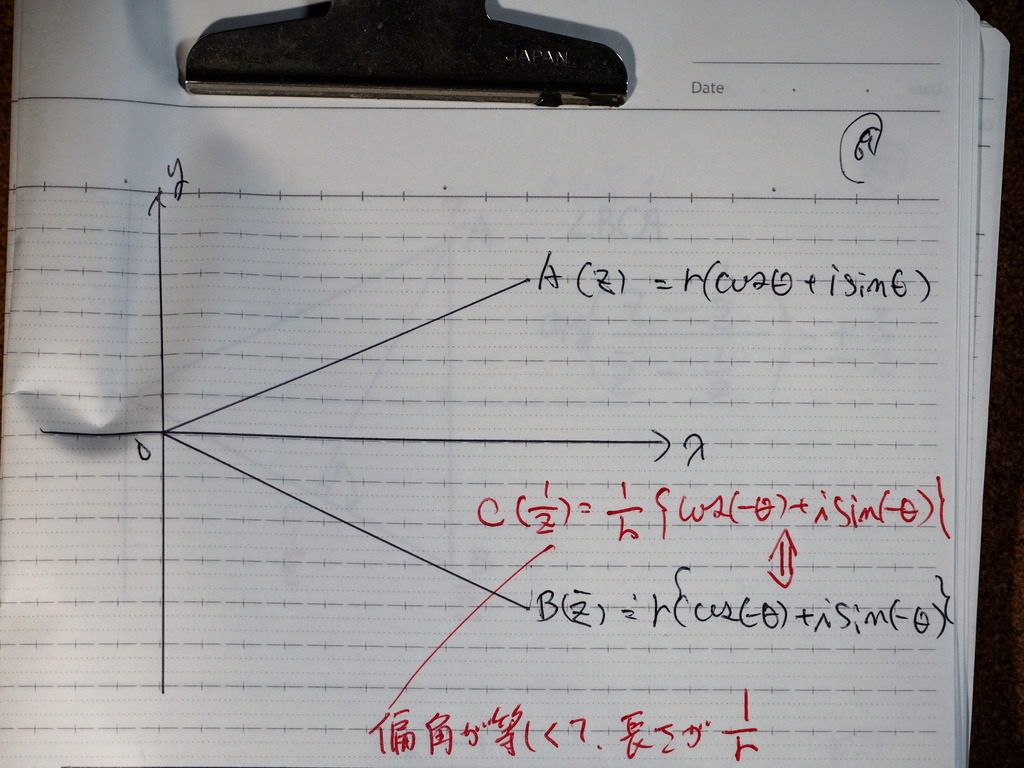 JAPAN
Date
y
A(z) = r(cosθ + i sinθ)
0
x
C(1/z) = 1/r {cos(-θ) + i sin(-θ)}
⇕
B(z̄) = r{cos(-θ) + i sin(-θ)}
偏角が等しくて、長さが 1/r